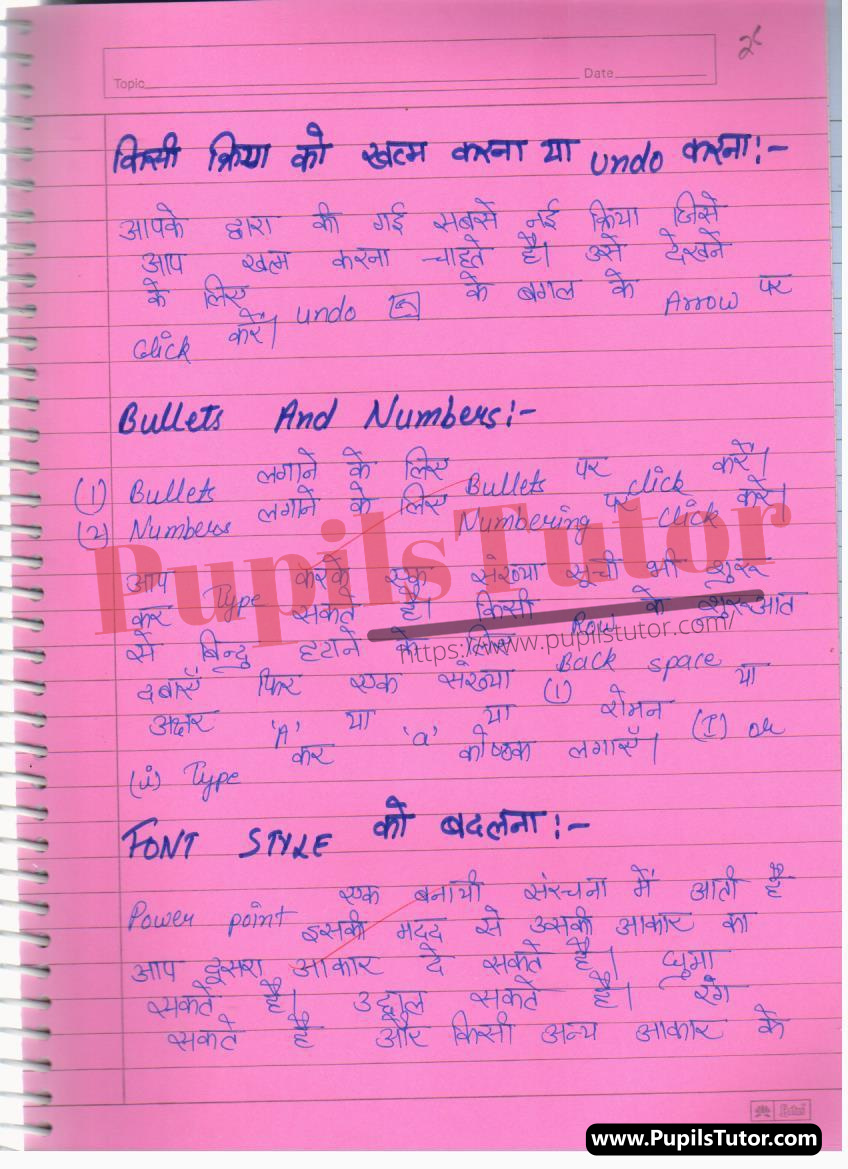 Topic Date
किसी क्रिया को खत्म करना या undo करना!:-
आपके द्वारा की गई सबसे नई क्रिया जिसे
आप खत्म करना चाहते है। उसे देखने
के लिए undo के बगल के Arrow पर
Click करें।
Bullets And Numbers!:-
(1) Bullets लगाने के लिए Bullets पर click करें।
(2) Numbers लगाने के लिए Numbering पर click करें।
आप Type करके एक संख्या सूची भी शुरू
कर सकते है। किसी Row के शुरूआत
से बिन्दु हटाने के लिए Back space
दबाएँ फिर एक संख्या (1) या
अक्षर 'A' या 'a' या रोमन (I) or
(ii) Type कर कोष्ठक लगाएँ।
FONT STYLE को बदलना!:-
Power point एक बनायी संरचना में आती है
इसकी मदद से उसकी आकार का
आप दूसरा आकार दे सकते है। घुमा
सकते है। उछाल सकते है। रंग
सकते है और किसी अन्य आकार के
PupilsTutor
https://www.pupilstutor.com/
www.PupilsTutor.com